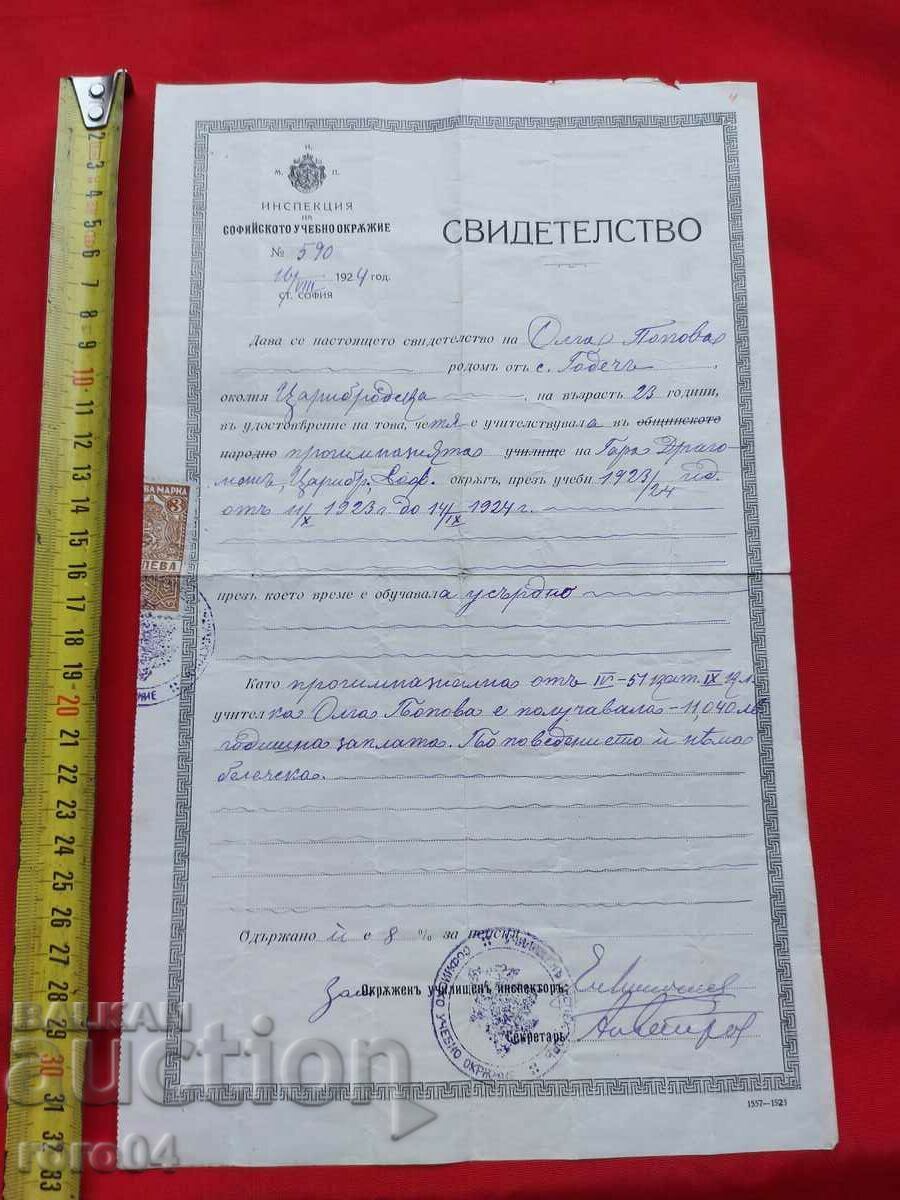 Н.
М. П.
ИНСПЕКЦИЯ
на
СОФИЙСКОТО УЧЕБНО ОКРѪЖИЕ
№ 590
16/VIII 1924 год.
ст. СОФИЯ
СВИДЕТЕЛСТВО
Дава се настоящето свидетелство на Олга Попова
родомъ отъ с. Годечъ,
околия Царибродска, на възрасть 23 години,
въ удостовѣрение на това, че тя е учителствувала въ общинското
народно прогимназията училище на Гара Драго-
манъ, Царибр., Соф. окрѫгъ, презъ учебн 1923/24 год.
отъ 1/X 1923 г. до 14/IX 1924 г.
презъ което време е обучавала усърдно
Като прогимназиална отъ IV-51 кат. IX
учителка Олга Попова е получавала 11,040 лв
годишна заплата. По поведението ѝ нѣма
бележка.
Одържано ѝ е 8 % за пенсия
За Окрѫженъ училищенъ инспекторъ:
Секретарь:
СОФИЙСКО УЧЕБНО ОКРѪЖИЕ
1557—1923
ВА МАРКА
3
ЛЕВА
2 3 4 5 6 7 8 9 10 11 12 13 14 15 16 17 18 19 20 21 22 23 24 25 26 27 28 29 30 31 32 33
BALKAN
auction
roro04